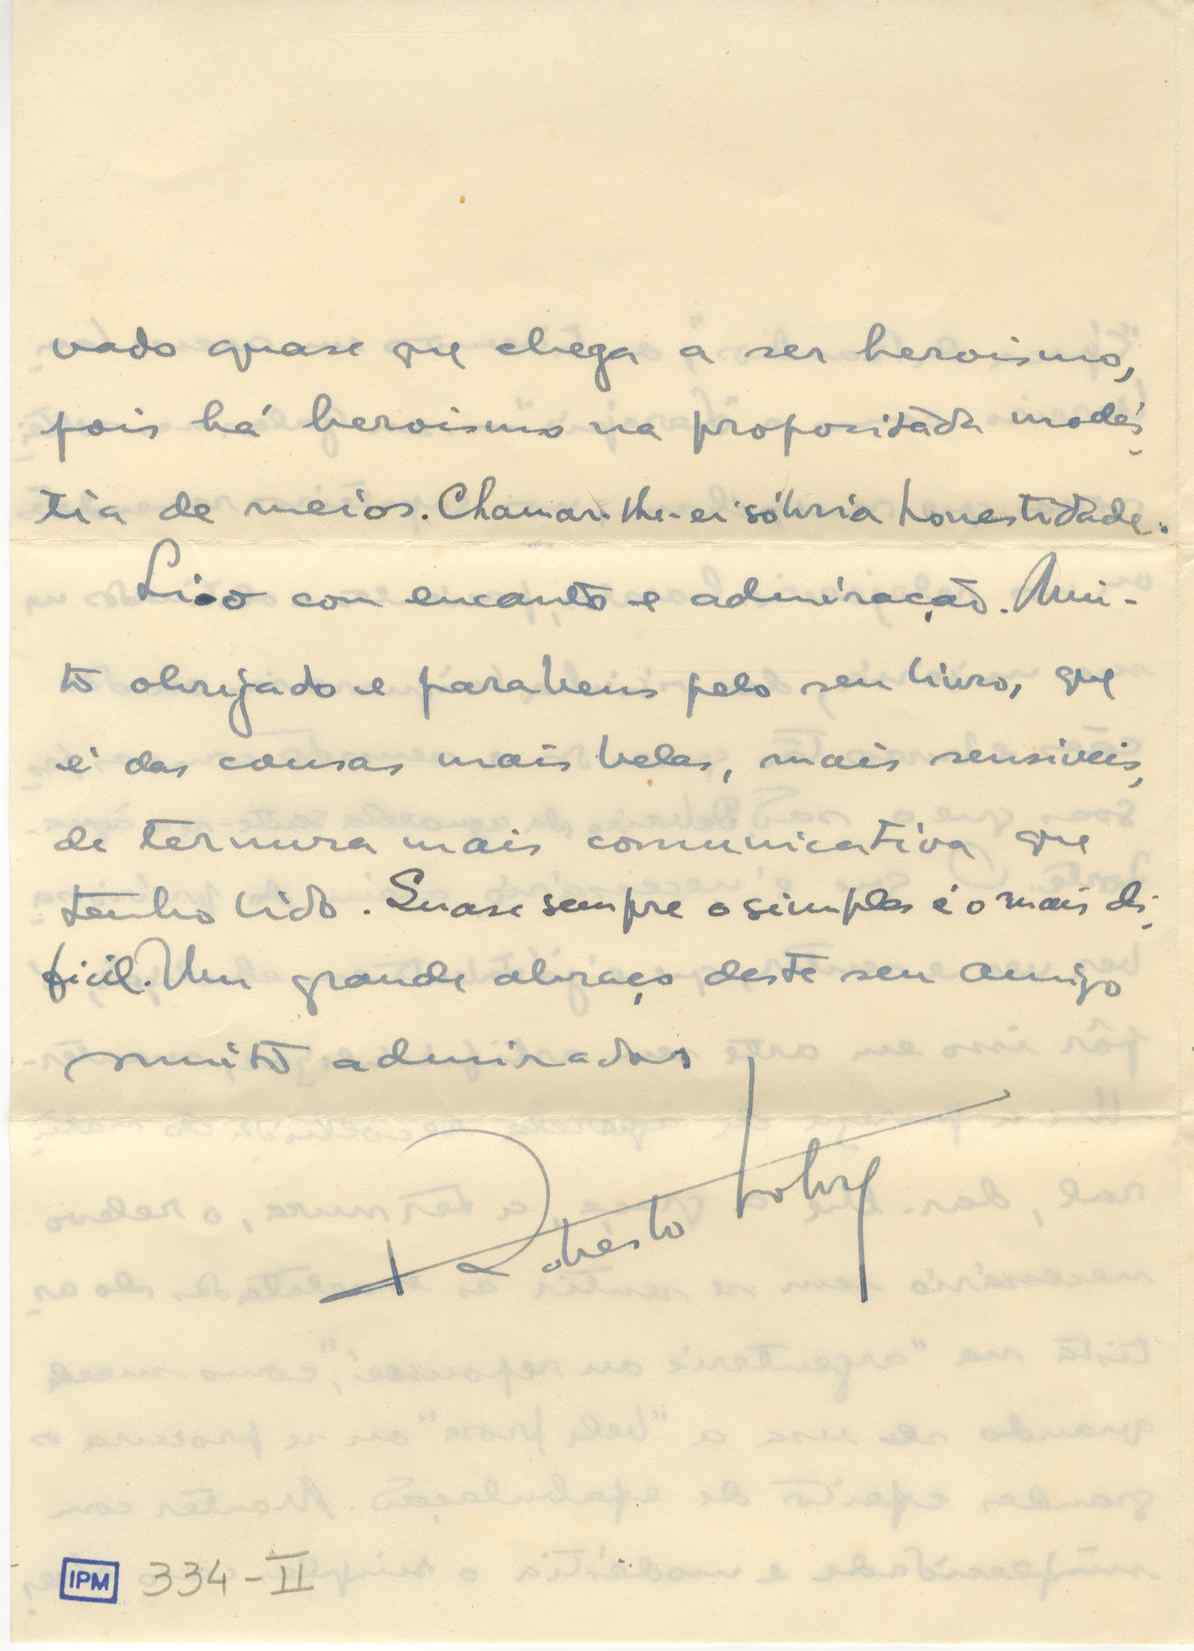 vado quase que chega a ser heroismo,
pois há heroismo na propositada modés-
tia de meios. Chamar-lhe-ei sóbria honestidade.
Li-o com encanto e admiração. Mui-
to obrigado e parabens pelo seu livro, que
é das cousas mais belas, mais sensiveis,
de ternura mais comunicativa que
tenho lido. Quase sempre o simples é o mais di-
ficil. Um grande abraço deste seu amigo
muito admirador
Roberto Nobre
IPM 334-II